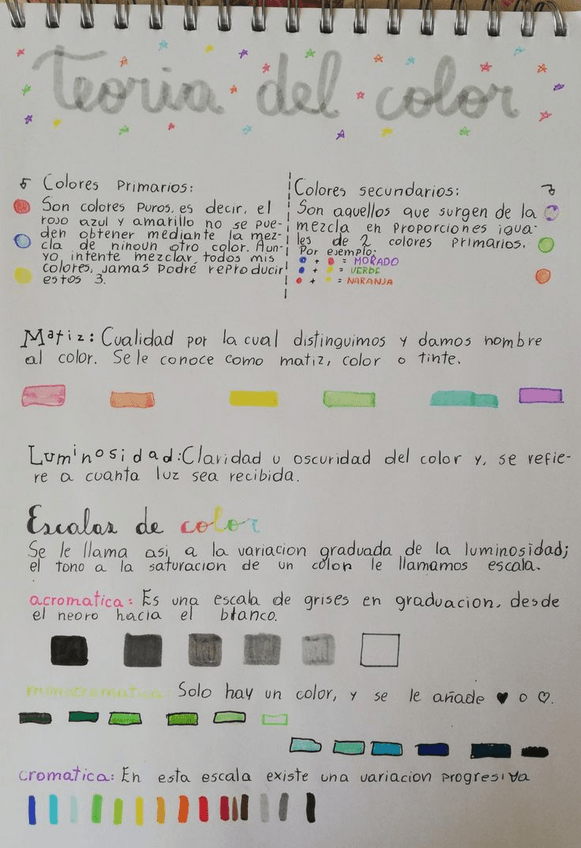 Teoria del color
Colores Primarios:
Son colores puros, es decir, el
rojo azul y amarillo no se pue-
den obtener mediante la mez-
cla de ninoun otro color. Aun-
yo, intente mezclar, todos mis
colores, jamas podré reproducir
estos 3.
Colores secundarios:
Son aquellos que surgen de la
mezcla en proporciones igua-
les de 2 colores primarios.
Por ejemplo:
+ = MORADO
+ = VERDE
+ = NARANJA
Matiz: Cualidad por la cual distinguimos y damos nombre
al color. Se le conoce como matiz, color o tinte.
Luminosidad: Claridad u oscuridad del color y, se refie-
re a cuanta luz sea recibida.
Escalas de color
Se le llama asi a la variacion graduada de la luminosidad;
el tono a la saturacion de un color le llamamos escala.
acromatica: Es una escala de grises en graduacion, desde
el neoro hacia el blanco.
monocromatica: Solo hay un color, y se le añade ♥ o ♡.
cromatica: En esta escala existe una variacion progresiva